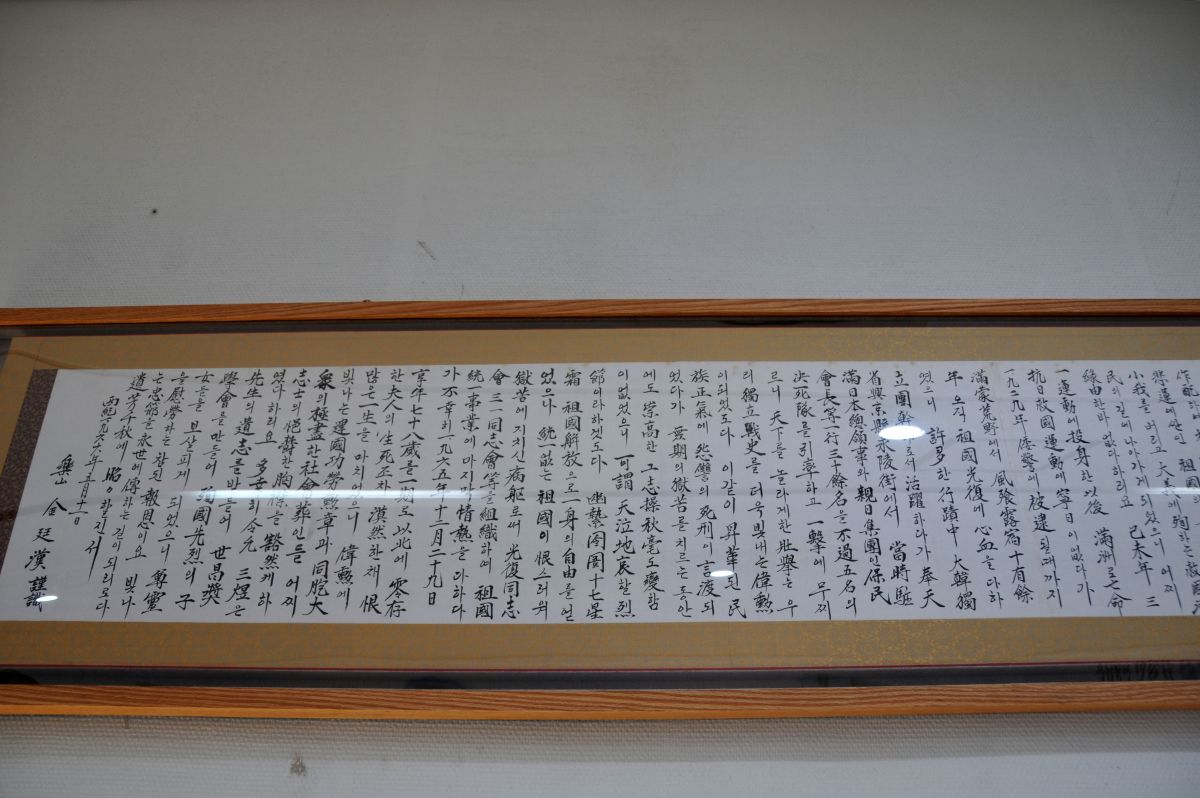 小我를 버리고 大義에 殉하는
民의 길에 나아가게 되었으니 어찌
緣由한바 없다하리요 己未年 三
一運動에 投身한 以後 滿洲로 亡命
抗日救國運動에 寧日이 없다가
一九二九年 倭警에 被逮될때까지
滿蒙荒野에서 風飡露宿 十有餘
年 오직 祖國光復에 心血을 다하
였으니 許多한 行蹟中 大韓獨
立團幹部로서 活躍하다가 奉天
省興京縣永陵街에서 當時 駐
滿日本總領事와 親日集團인 保民
會長等 一行 三十餘名을 不過 五名의
決死隊를 引率하고 一擊에 무찌
르니 天下를 놀라게한 壯擧는 우
리 獨立戰史를 더욱 빛내는 偉勳
이 되었도다 이같이 昇華된 民
族正氣에 怨讐의 死刑이 言渡되
었다가 無期의 獄苦를 치르는 동안
에도 崇高한 그 志操 秋毫도 變함
이 없었으니 可謂 天泣地哀할 烈
節이라 하겟도다 幽縶囹圄 十七星
霜 祖國解放으로 一身의 自由를 얻
었으나 統一 없는 祖國이 恨스러워
獄苦에 지치신 病軀로써 光復同志
會 三一同志會等을 組織하여 祖國
統一事業에 마지막 情熱을 다하다
가 不幸히 一九六五年 十二月 二十九日
享年 七十八歲를 一期로 以北에 零存
한 夫人의 生死조차 漠然한채 恨
많은 一生을 마치었으니 偉勳에
빛나는 建國功勞勳章과 同胞大
衆의 極盡한 社會葬인들 어찌
志士의 悒鬱한 胸懷를 豁然케 하
였다 하리요 多幸히 令兄 三煌은
先生의 遺志를 받들어 世昌奬
學會를 만들어 殉國光烈의 子
女들을 보살피게 되었으니 尊靈
을 慰藉하는 참된 報恩이요 빛나
는 忠節을 永世에 傳하는 길이 되리로다
遺芳千秋에
一九六六年 五月 十一日
樂山 金廷漢 謹識